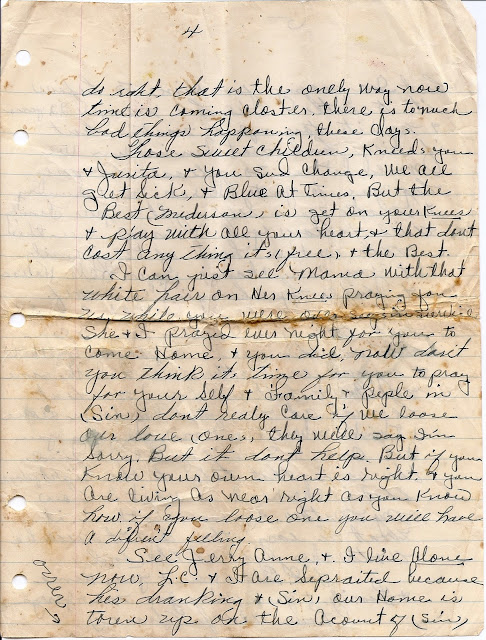 4
do right, that is the onely way now
time is coming closter. there is to much
bad things happoning, these days.
Those sweet children, Kneeds you
& Junita, & you Sud Change, We all
get sick, & Blue At Times. But the
Best (Medison, is get on your Knees
& pray with all your heart & that dont
Cost any thing its free, & the Best.
I Can just see Mama with that
white hair on Her Knees praying for
you while you were over
She & I prayed ever night for you to
Come Home, & you did, now dont
you think it, time for you to pray
for your Self & Family & peple in
(Sin) dont really Care if we loose
our love (ones, they will say I'm
Sorry. But it dont help. But if you
Know your own heart is right. & you
Are living as near right as you Know
how if you loose one you will have
a difirnt feeling.
See Jerry Anne, & I live Alone
now, L.C. & I Are Sepraited because
hes dranking & (Sin, our Home is
toren up on the Acount of (Sin,
over →